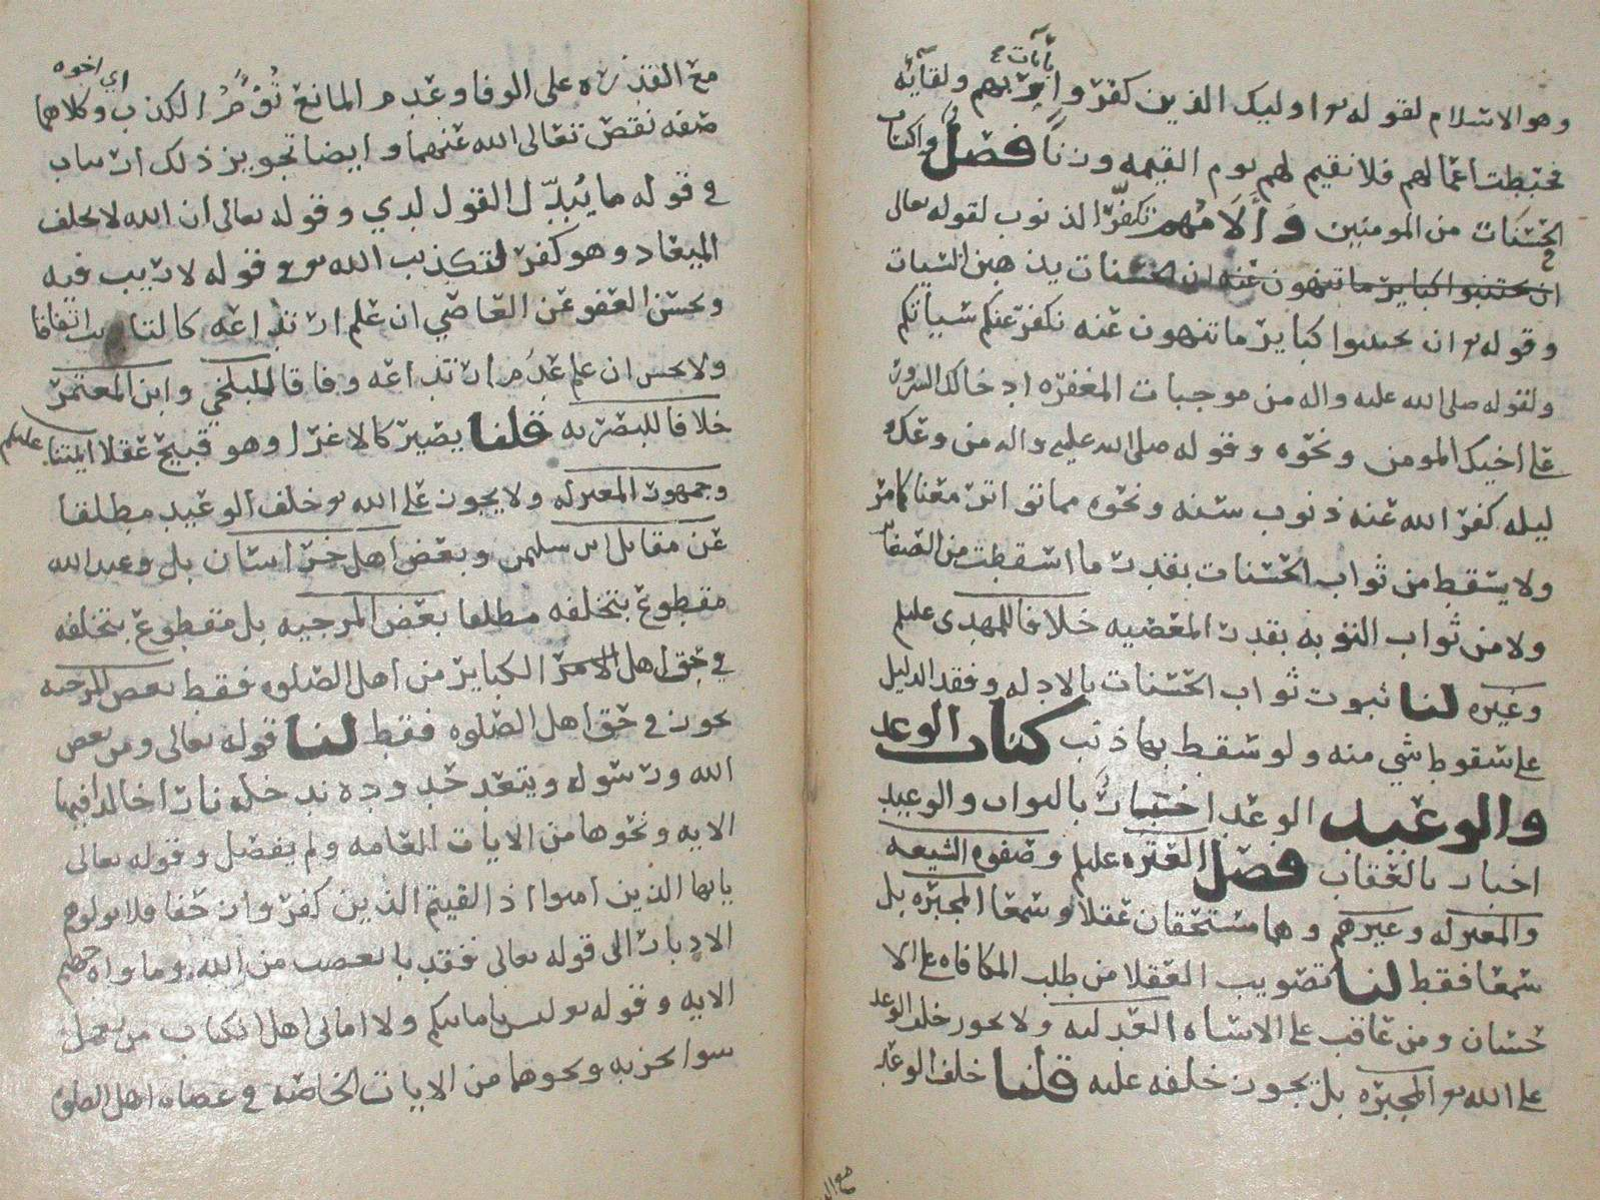 وهو الاسلام لقوله تع اوليك الذين كفروا بآيات ربهم ولقائه
فحبطت اعمالهم فلا نقيم لهم يوم القيمه وزنا فصل واكتساب
الحسنات من المومنين والآلام تكفر الذنوب لقوله تعالى
ان تجتنبوا كباير ما تنهون عنه ان الحسنات يذهبن السيات
وقوله تع ان تجتنبوا كباير ما تنهون عنه نكفر عنكم سيأتكم
ولقوله صلى الله عليه واله من موجبات المغفره ادخالك السرور
على اخيك المومن ونحوه وقوله صلى الله عليه واله من وعك
ليله كفر الله عنه ذنوب سنه ونحوه مما تواتر معنا كما مر
ولا يسقط من ثواب الحسنات بقدر ما اسقطت من
ولا من ثواب التوبه بقدر المعصيه خلافا للمهدى عليلم
وغيره لنا ثبوت ثواب الحسنات بالادله وفقد الدليل
على سقوط شي منه ولو سقط بها ذنب كتاب الوعد
والوعيد الوعد اخبار بالثواب والوعيد
اخبار بالعقاب فصل العتره عليلم وصفوه الشيعه
والمعتزله وغيرهم وهما مستحقان عقلا وسمعا المجبره بل
سمعا فقط لنا تصويب العقلا من طلب المكافاه على الا
حسان ومن عاقب على الاساه العدليه ولا يجوز خلف الوعد
على الله تع المجبره بل يجوز خلفه عليه قلنا خلف الوعد
مع القدره على الوفا وعدم المانع الكذب او وكلاهما
صفه نقص تعالى الله عنهما وايضا تجويز ذلك ارتياب
في قوله ما يبدل القول لدي وقوله تعالى ان الله لا يخلف
الميعاد وهو كفر لتكذيب الله تع في قوله لا ريب فيه
ويحسن العفو عن العاصي ان علم ارتداعه كالتايب اتفاقا
ولا يحسن ان علم عدم ارتداعه وفاقا للبلخي وابن المعتمر
خلافا للبصريه قلنا يصير كالاغرا وهو قبيح عقلا ايمتنا عليلم
وجمهور المعتزله ولا يجوز على الله تع خلف الوعيد مطلقا
عن مقاتل ابن سليمن وبعض اهل خراسان بل وعيد الله
مقطوع بتخلفه مطلقا بعض المرجيه بل مقطوع بتخلفه
في حق اهل الكباير من اهل الصلوه فقط بعض المرجيه
يجوز في حق اهل الصلوه فقط لنا قوله تعالى ومن يعص
الله ورسوله ويتعد حدوده ندخله نارا خالدا فيها
الايه ونحوها من الايات العامه ولم يفصل وقوله تعالى
يايها الذين امنوا اذا لقيتم الذين كفروا زحفا فلا تولوهم
الادبار الى قوله تعالى فقد با بغضب من الله وماواه جهنم
الايه وقوله تع ليس بامانيكم ولا امانى اهل الكتاب من يعمل
سوا يجز به ونحوهما من الايات الخاصه في عصاه اهل الصلوه